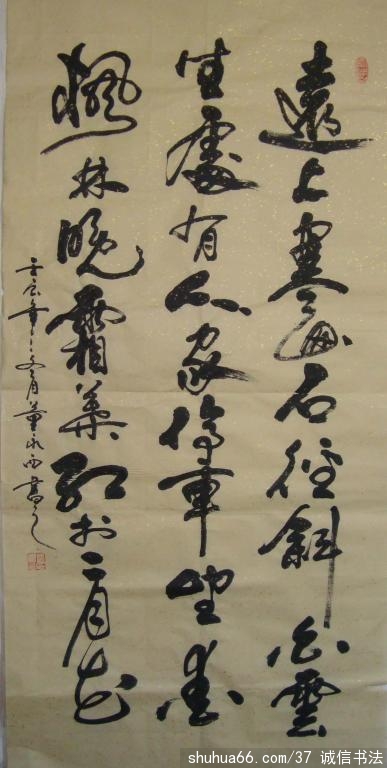 遠上寒山石徑斜白雲
生處有人家停車坐愛
楓林晚霜葉紅於二月花
壬辰年冬月董永西書
shuhua66.com/37 诚信书法